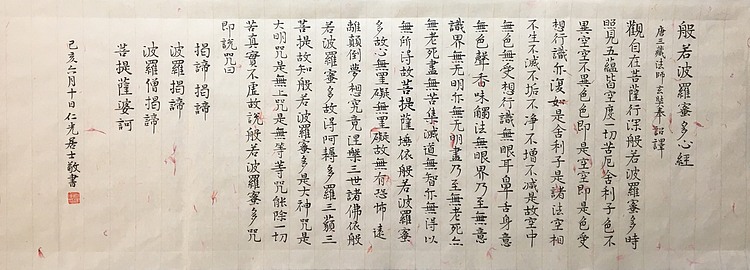 般若波羅蜜多心經
唐三藏法師玄奘奉詔譯
觀自在菩薩行深般若波羅蜜多時
照見五蘊皆空度一切苦厄舍利子色不
異空空不異色色即是空空即是色受
想行識亦復如是舍利子是諸法空相
不生不滅不垢不淨不增不減是故空中
無色無受想行識無眼耳鼻舌身意
無色聲香味觸法無眼界乃至無意
識界無無明亦無無明盡乃至無老死亦
無老死盡無苦集滅道無智亦無得以
無所得故菩提薩埵依般若波羅蜜
多故心無罣礙無罣礙故無有恐怖遠
離顛倒夢想究竟涅槃三世諸佛依般
若波羅蜜多故得阿耨多羅三藐三
菩提故知般若波羅蜜多是大神咒是
大明咒是無上咒是無等等咒能除一切
苦真實不虛故說般若波羅蜜多咒
即說咒曰
揭諦 揭諦
波羅揭諦
波羅僧揭諦
菩提薩婆訶
己亥六月十日仁光居士敬書